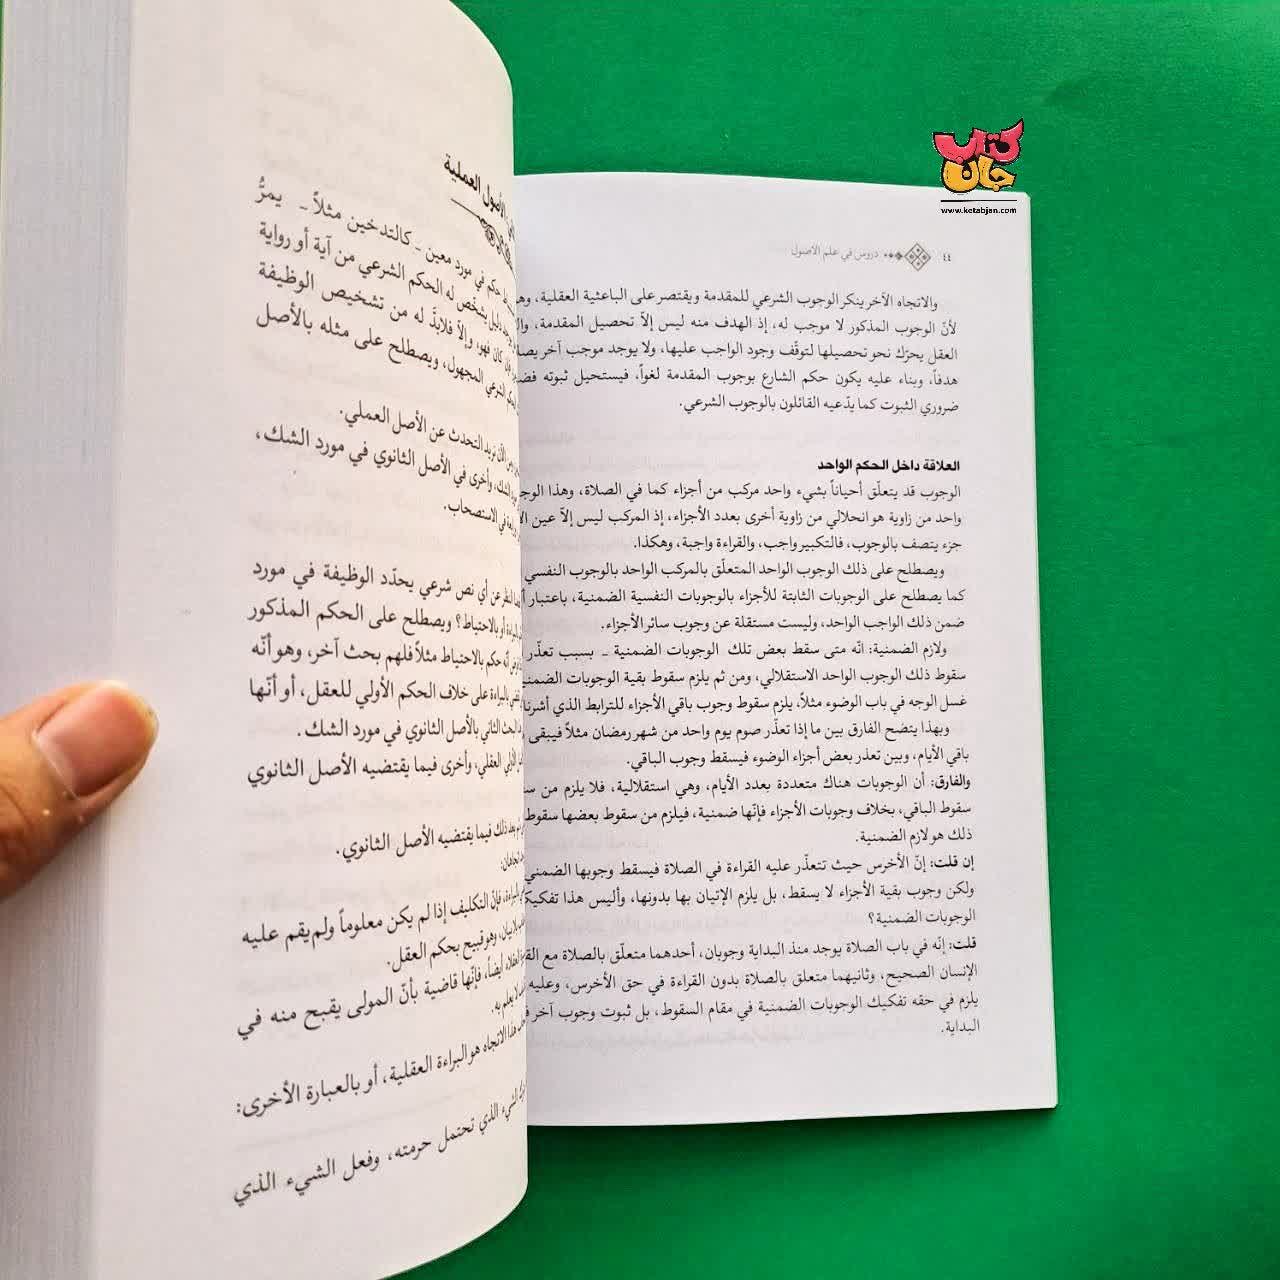 كتاب
جان
www.ketabjan.com
٤٤
دروس في علم الاصول
والاتجاه الآخر ينكر الوجوب الشرعي للمقدمة ويقتصر على الباعثية العقلية،
لأنّ الوجوب المذكور لا موجب له، إذ الهدف منه ليس إلاّ تحصيل المقدمة،
العقل يحرّك نحو تحصيلها لتوقّف وجود الواجب عليها، ولا يوجد موجب آخر
هدفاً، وبناء عليه يكون حكم الشارع بوجوب المقدمة لغواً، فيستحيل ثبوته
ضروري الثبوت كما يدّعيه القائلون بالوجوب الشرعي.
العلاقة داخل الحكم الواحد
الوجوب قد يتعلّق أحياناً بشيء واحد مركب من أجزاء كما في الصلاة، وهذا
واحد من زاوية هو انحلالي من زاوية أخرى بعدد الأجزاء، إذ المركب ليس إلاّ عين
جزء يتصف بالوجوب، فالتكبير واجب، والقراءة واجبة، وهكذا.
ويصطلح على ذلك الوجوب الواحد المتعلّق بالمركب الواحد بالوجوب النفسي
كما يصطلح على الوجوبات الثابتة للأجزاء بالوجوبات النفسية الضمنية، باعتبار
ضمن ذلك الواجب الواحد، وليست مستقلة عن وجوب سائر الأجزاء.
ولازم الضمنية: انّه متى سقط بعض تلك الوجوبات الضمنية ـ بسبب تعذّر
سقوط ذلك الوجوب الواحد الاستقلالي، ومن ثم يلزم سقوط بقية الوجوبات
غسل الوجه في باب الوضوء مثلاً، يلزم سقوط وجوب باقي الأجزاء للترابط الذي
وبهذا يتضح الفارق بين ما إذا تعذّر صوم يوم واحد من شهر رمضان مثلاً فيبقى
باقي الأيام، وبين تعذر بعض أجزاء الوضوء فيسقط وجوب الباقي.
والفارق: أن الوجوبات هناك متعددة بعدد الأيام، وهي استقلالية، فلا يلزم من
سقوط الباقي، بخلاف وجوبات الأجزاء فإنّها ضمنية، فيلزم من سقوط بعضها سقوط
ذلك هو لازم الضمنية.
إن قلت: إنّ الأخرس حيث تتعذّر عليه القراءة في الصلاة فيسقط وجوبها الضمني
ولكن وجوب بقية الأجزاء لا يسقط، بل يلزم الإتيان بها بدونها، وأليس هذا
الوجوبات الضمنية؟
قلت: إنّه في باب الصلاة يوجد منذ البداية وجوبان، أحدهما متعلّق بالصلاة مع
الإنسان الصحيح، وثانيهما متعلق بالصلاة بدون القراءة في حق الأخرس، وعليه
يلزم في حقه تفكيك الوجوبات الضمنية في مقام السقوط، بل ثبوت وجوب آخر
البداية.
الأصول العملية
حكم في مورد معين ـ كالتدخين مثلاً ـ يمرُّ
دليل يشخص له الحكم الشرعي من آية أو رواية
كان فهو، وإلاّ فلابدّ له من تشخيص الوظيفة
الشرعي المجهول، ويصطلح على مثله بالأصل
الآن نريد التحدث عن الأصل العملي.
الشك، وأخرى في الأصل الثانوي في مورد الشك،
في الاستصحاب.
النظر عن أي نص شرعي يحدّد الوظيفة في مورد
أو بالاحتياط؟ ويصطلح على الحكم المذكور
أنّه حكم بالاحتياط مثلاً فلهم بحث آخر، وهو أنّه
بالبراءة على خلاف الحكم الأولي للعقل، أو أنّها
البحث الثاني بالأصل الثانوي في مورد الشك.
الأولي العقلي، وأخرى فيما يقتضيه الأصل الثانوي
بعد ذلك فيما يقتضيه الأصل الثانوي.
اتجاهان:
فإنّ التكليف إذا لم يكن معلوماً ولم يقم عليه
وهو قبيح بحكم العقل.
أيضاً، فإنّها قاضية بأنّ المولى يقبح منه في
لا يعلم به.
هذا الاتجاه هو البراءة العقلية، أو بالعبارة الأخرى:
الشيء الذي تحتمل حرمته، وفعل الشيء الذي